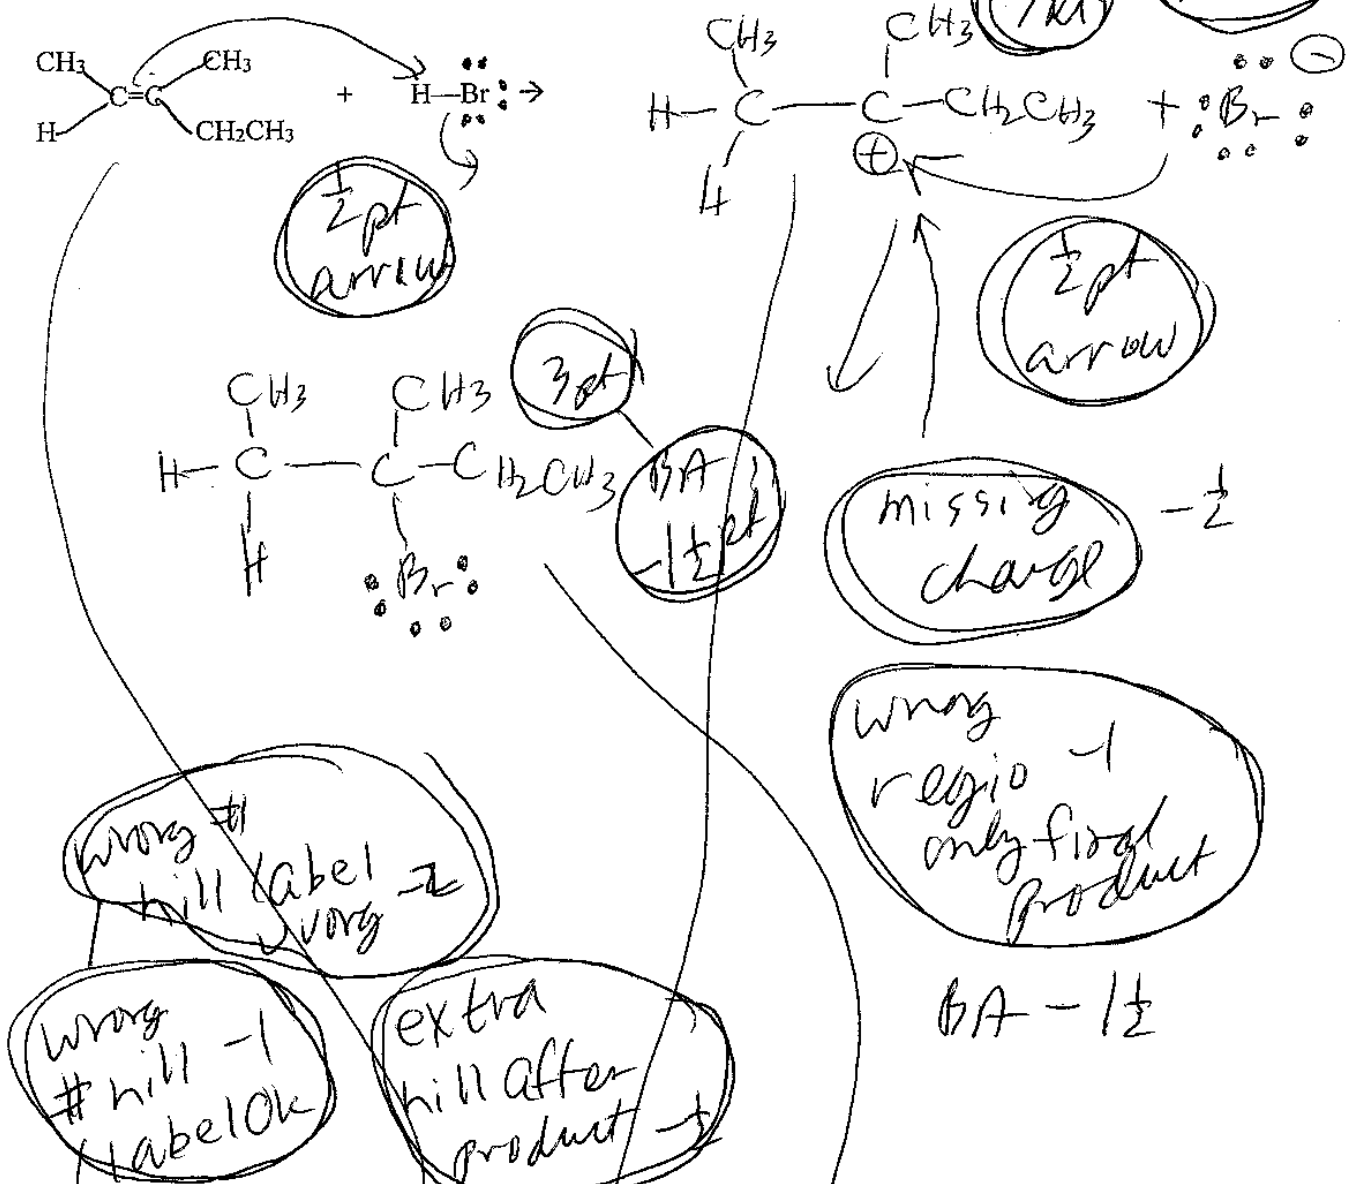 CH3 CH3
C=C + H—Br →
H CH2CH3
CH3 CH3
H—C—C—CH2CH3 + Br −
H +
1/2 pt
arrow
1/2 pt
arrow
3pt
CH3 CH3
H—C—C—CH2CH3
H Br
BA
-1 1/2 pt
missing
charge
-1/2
wrong
regio -1
only final
product
BA -1 1/2
wrong #
hill label
wrong
wrong
# hill -1
label OK
extra
hill after
product